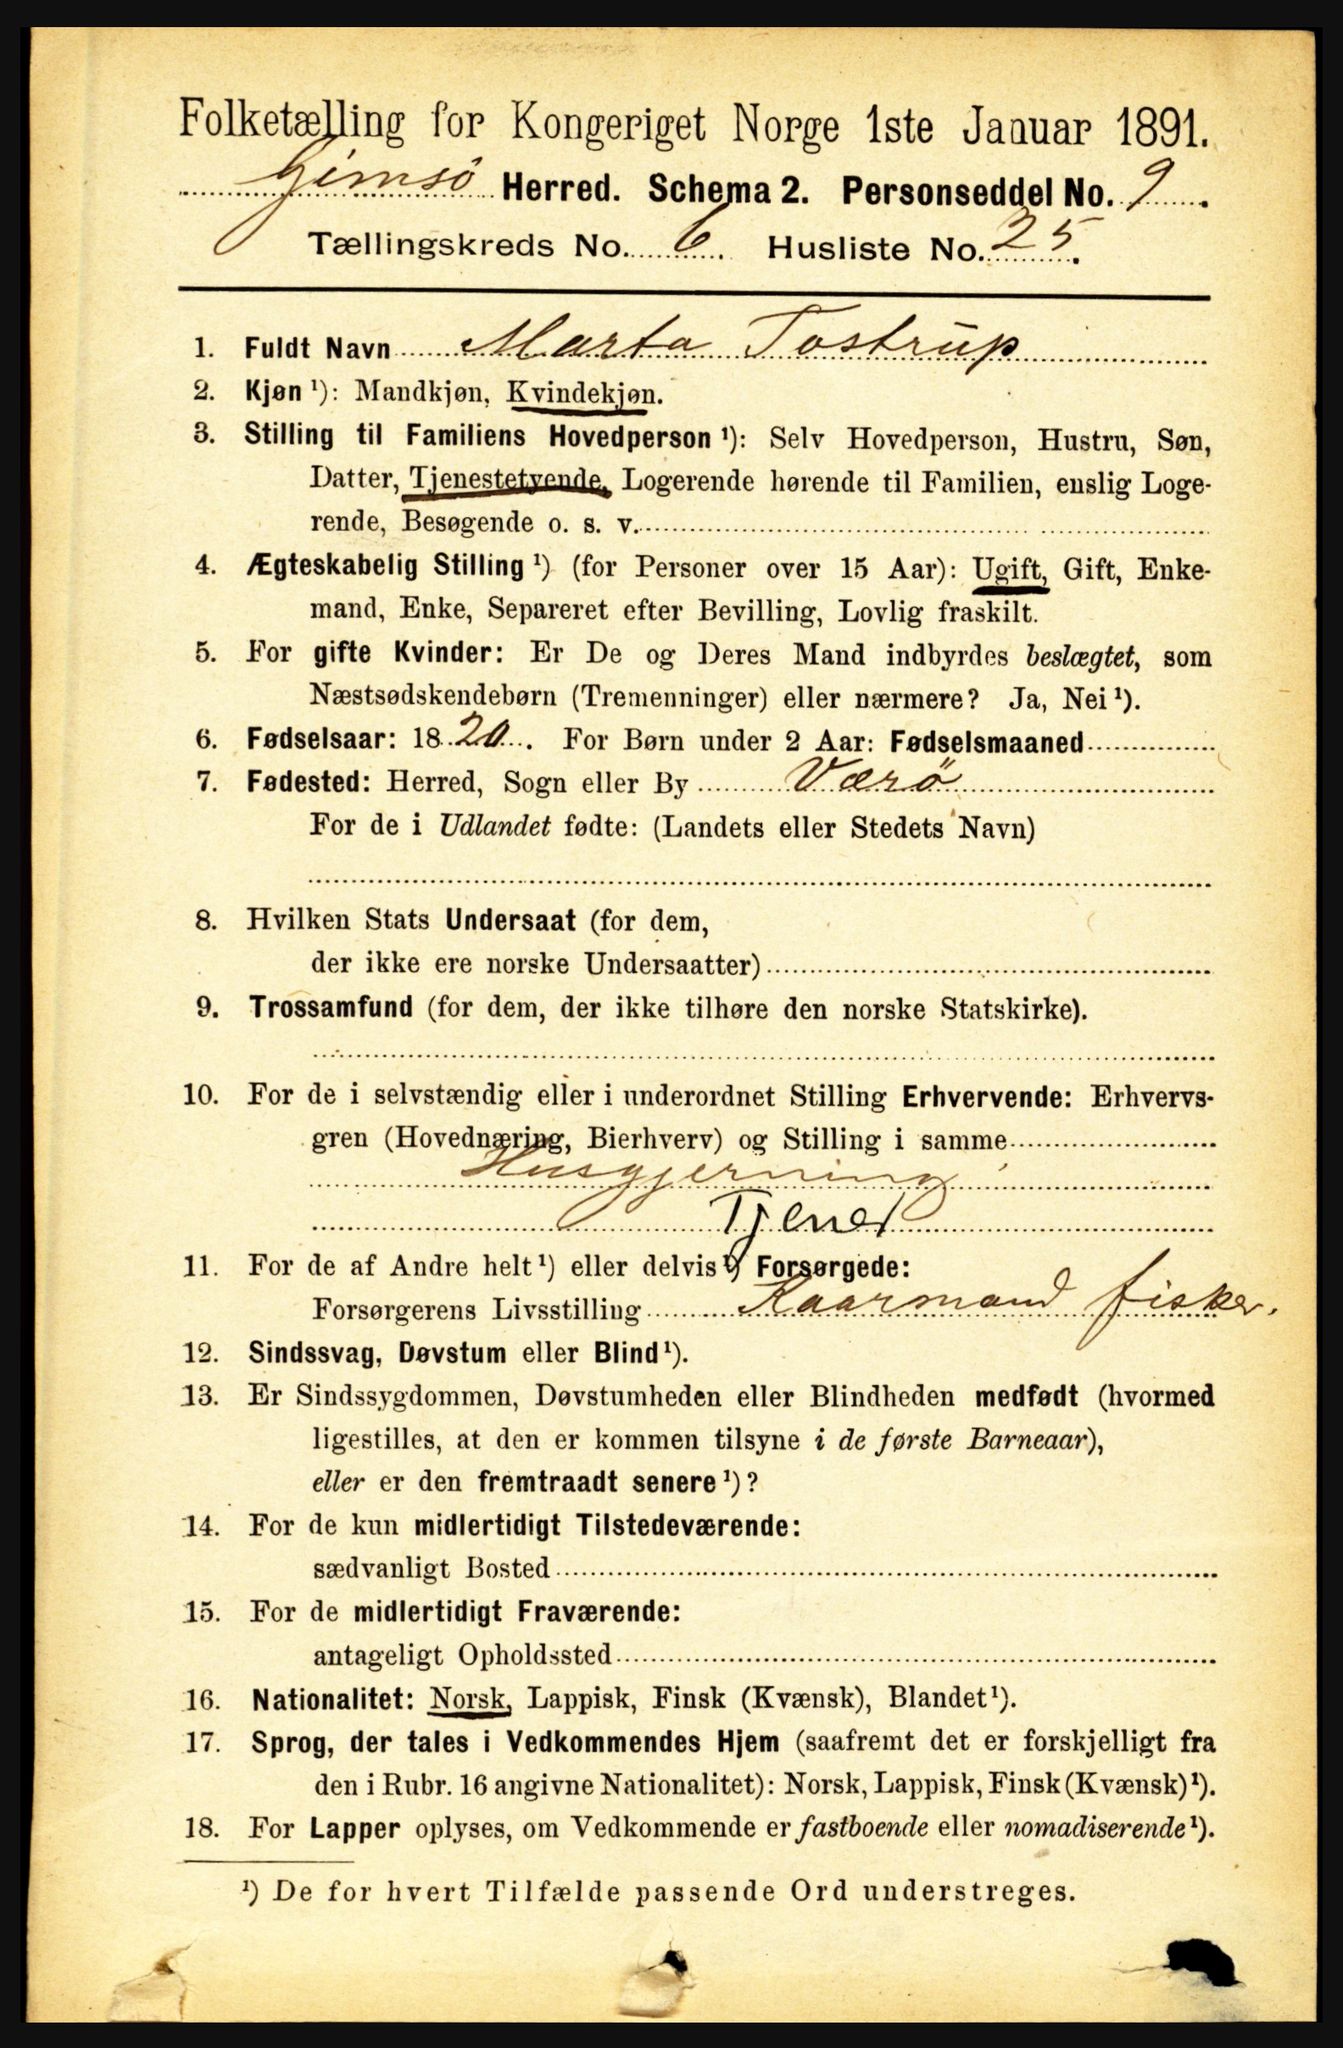 Folketælling for Kongeriget Norge 1ste Januar 1891.
Gimsø Herred. Schema 2. Personseddel No. 9.
Tællingskreds No. 6. Husliste No. 25.
1. Fuldt Navn Marta Tostrup
2. Kjøn ¹): Mandkjøn, Kvindekjøn.
3. Stilling til Familiens Hovedperson ¹): Selv Hovedperson, Hustru, Søn,
Datter, Tjenestetyende, Logerende hørende til Familien, enslig Loge-
rende, Besøgende o. s. v.
4. Ægteskabelig Stilling ¹) (for Personer over 15 Aar): Ugift, Gift, Enke-
mand, Enke, Separeret efter Bevilling, Lovlig fraskilt.
5. For gifte Kvinder: Er De og Deres Mand indbyrdes beslægtet, som
Næstsødskendebørn (Tremenninger) eller nærmere? Ja, Nei ¹).
6. Fødselsaar: 1820. For Børn under 2 Aar: Fødselsmaaned
7. Fødested: Herred, Sogn eller By Værö
For de i Udlandet fødte: (Landets eller Stedets Navn)
8. Hvilken Stats Undersaat (for dem,
der ikke ere norske Undersaatter)
9. Trossamfund (for dem, der ikke tilhøre den norske Statskirke).
10. For de i selvstændig eller i underordnet Stilling Erhvervende: Erhvervs-
gren (Hovednæring, Bierhverv) og Stilling i samme
Husgjerning
Tjener
11. For de af Andre helt ¹) eller delvis ¹) Forsørgede:
Forsørgerens Livsstilling Kaarmand fisker.
12. Sindssvag, Døvstum eller Blind ¹).
13. Er Sindssygdommen, Døvstumheden eller Blindheden medfødt (hvormed
ligestilles, at den er kommen tilsyne i de første Barneaar),
eller er den fremtraadt senere ¹)?
14. For de kun midlertidigt Tilstedeværende:
sædvanligt Bosted
15. For de midlertidigt Fraværende:
antageligt Opholdssted
16. Nationalitet: Norsk, Lappisk, Finsk (Kvænsk), Blandet ¹).
17. Sprog, der tales i Vedkommendes Hjem (saafremt det er forskjelligt fra
den i Rubr. 16 angivne Nationalitet): Norsk, Lappisk, Finsk (Kvænsk) ¹).
18. For Lapper oplyses, om Vedkommende er fastboende eller nomadiserende ¹).
¹) De for hvert Tilfælde passende Ord understreges.